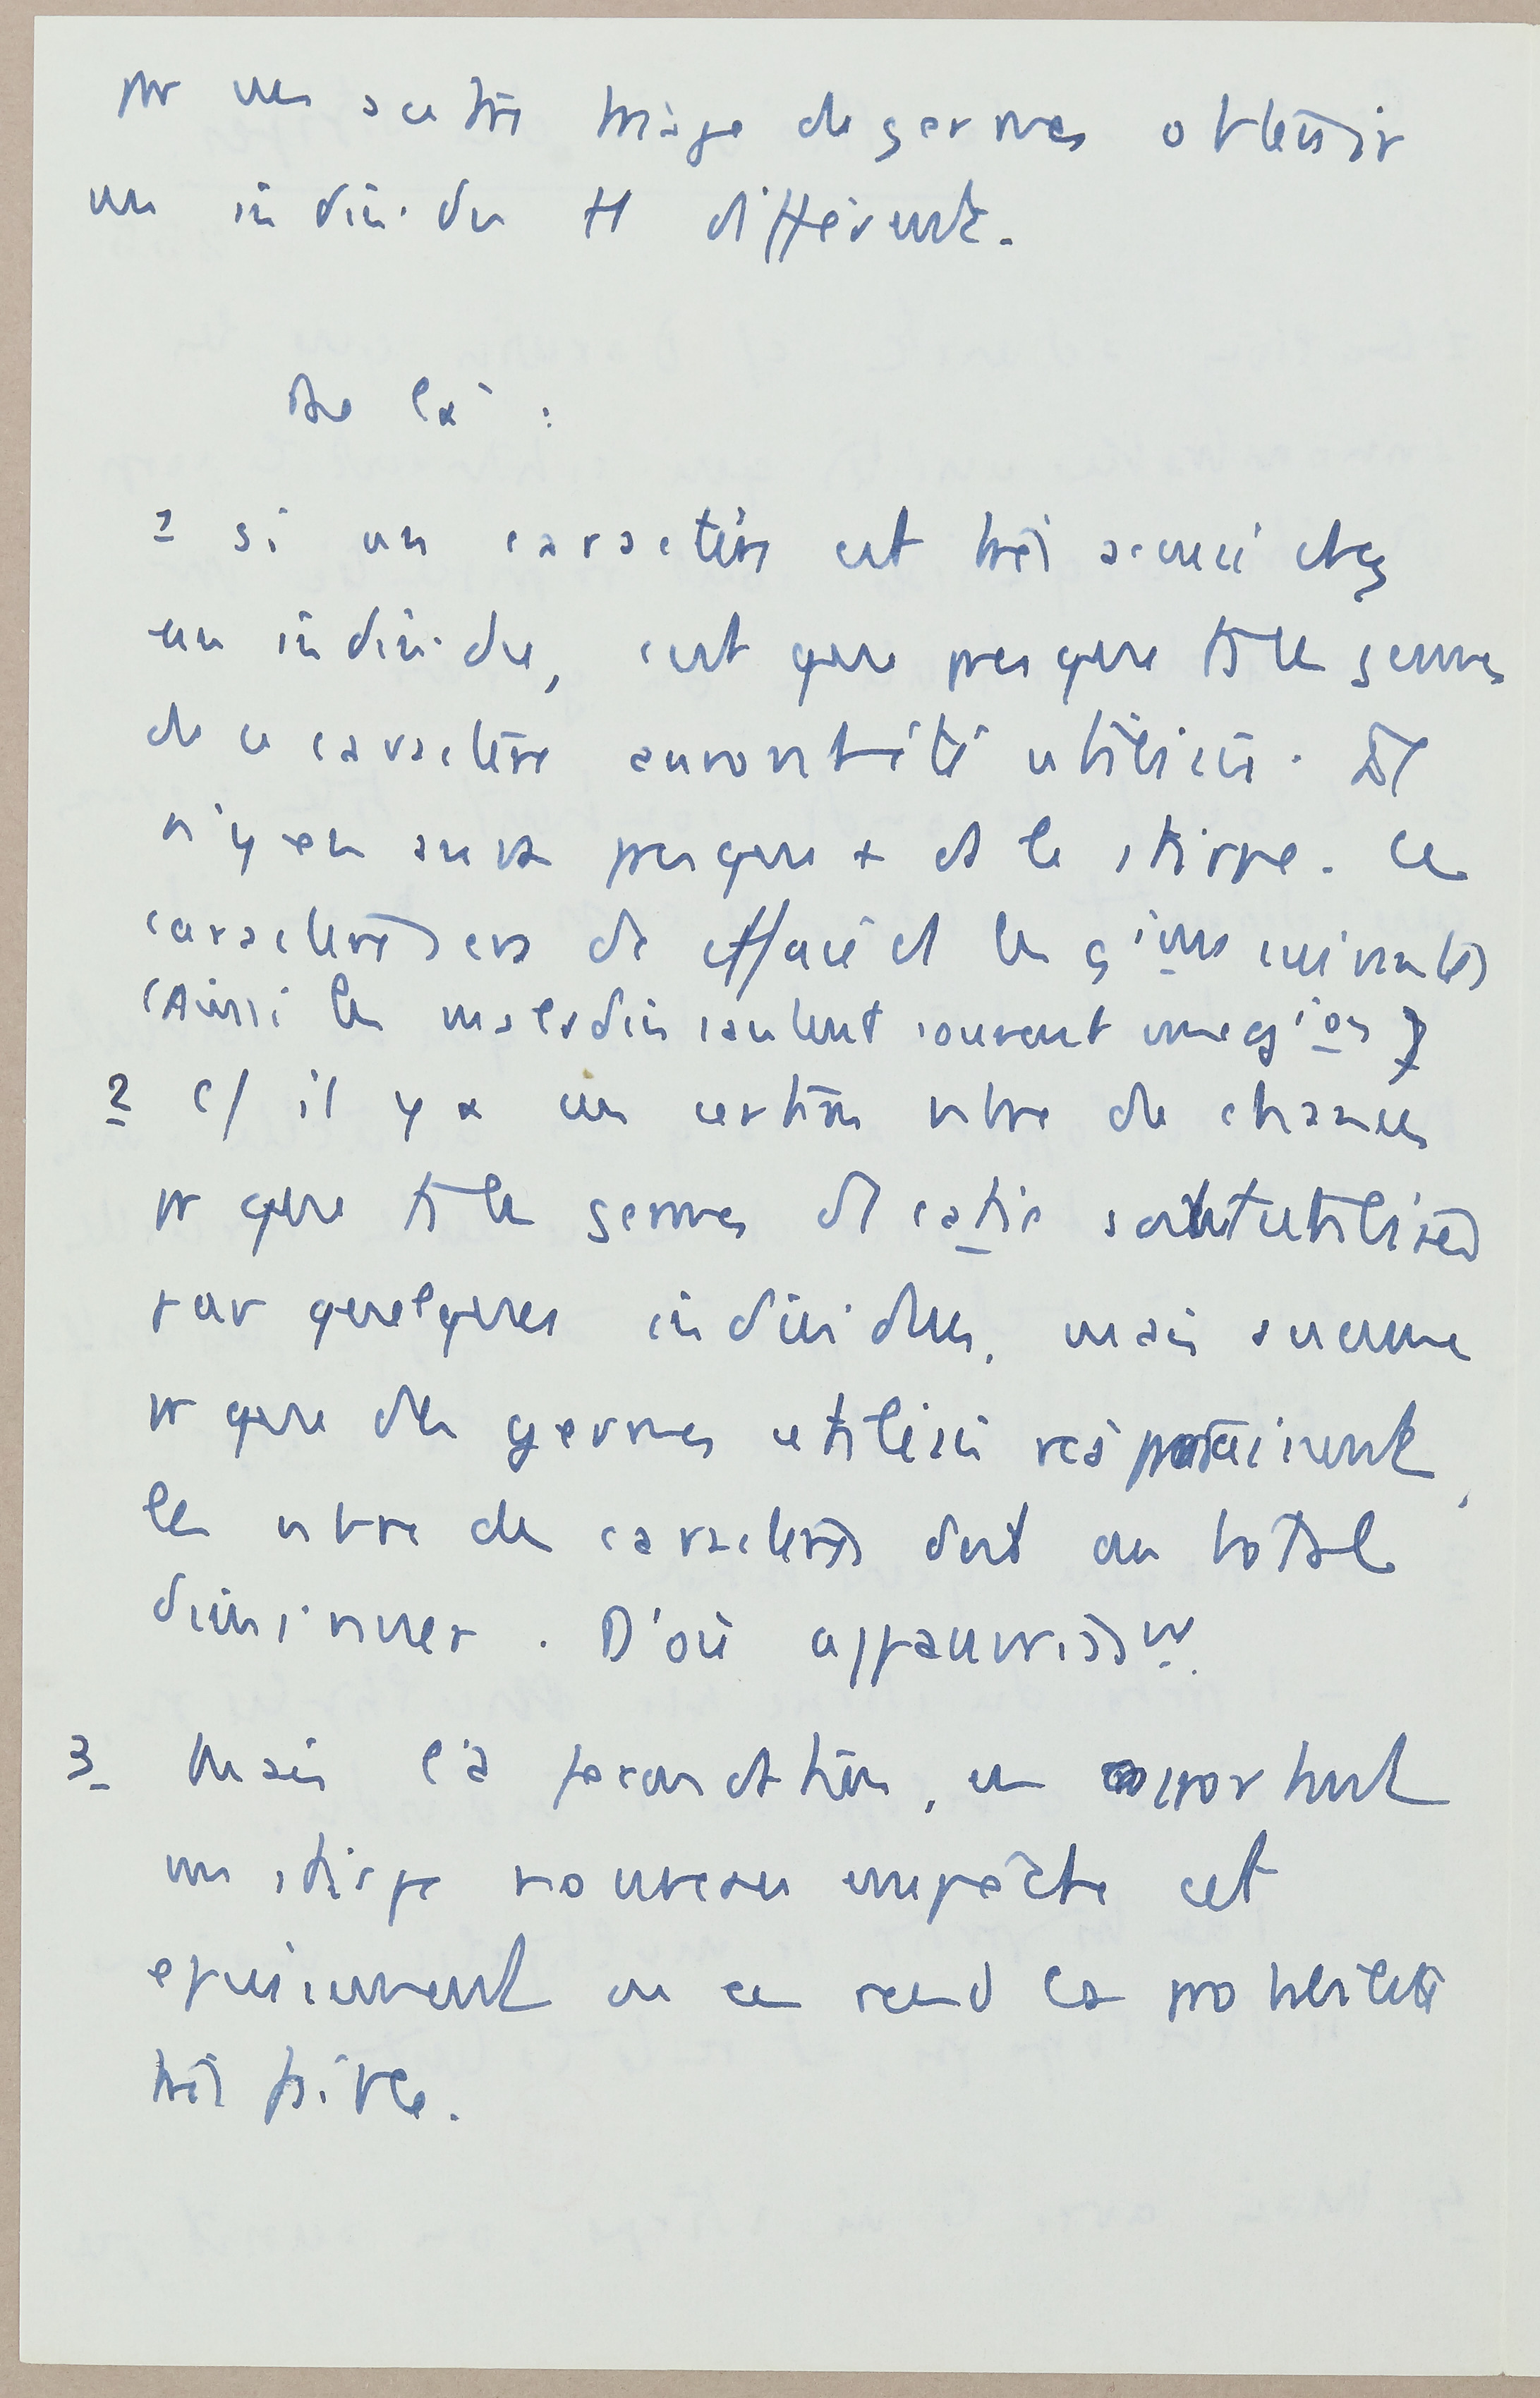 pr un autre triage de germes obtenir
un individu tt différent.
De là :
1 si un caractère est très accusé chez
un individu, c'est que presque ts les germes
de ce caractère auront été utilisés. Il
n'y en aura presque + ds le stirpe. Ce
caractère sera dc effacé ds les gions suivantes
(Ainsi les maladies sautent souvent une gion)
2 c/ il y a un certain nbre de chances
pr que ts les germes d'1 catie soient utilisés
par quelques individus, mais aucune
pr que des germes utilisés réapparaissent,
le nbre de caractères doit au total
diminuer. D'où appauvrisst.
3 Mais la
un stirpe nouveau empêche cet
épuisement ou en rend la probabilité
très faible.